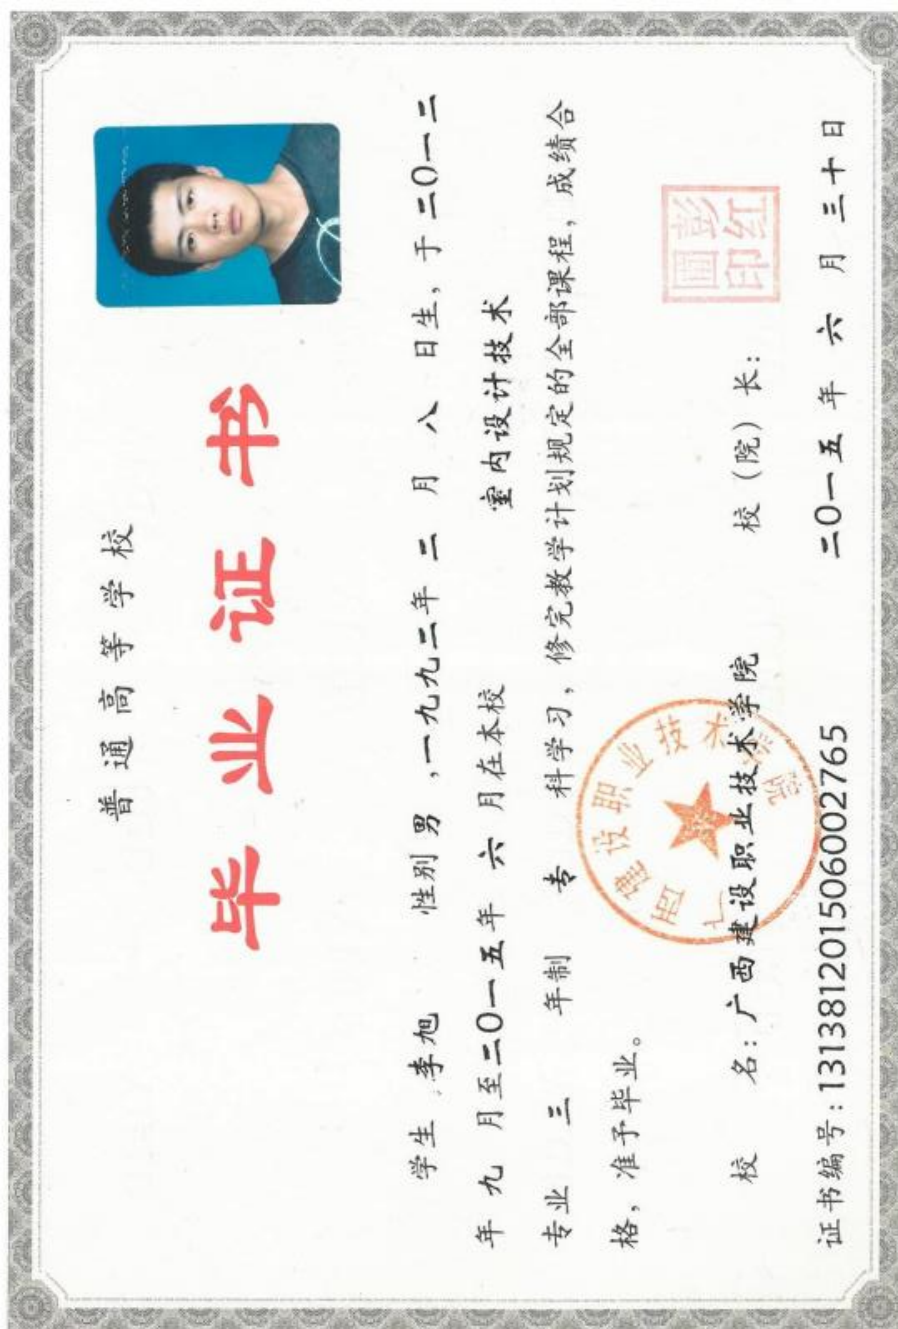 普通高等学校
毕业证书
学生 李旭 性别 男 ,一九九二年 二 月 八 日生，于二〇一二
年 九 月至二〇一五年 六 月在本校 室内设计技术
专业 三 年制 专 科学习，修完教学计划规定的全部课程，成绩合
格，准予毕业。
彭红
印
广西建设职业技术学院
校 名：广西建设职业技术学院 校（院）长：
证书编号：131381201506002765 二〇一五 年 六 月 三十 日